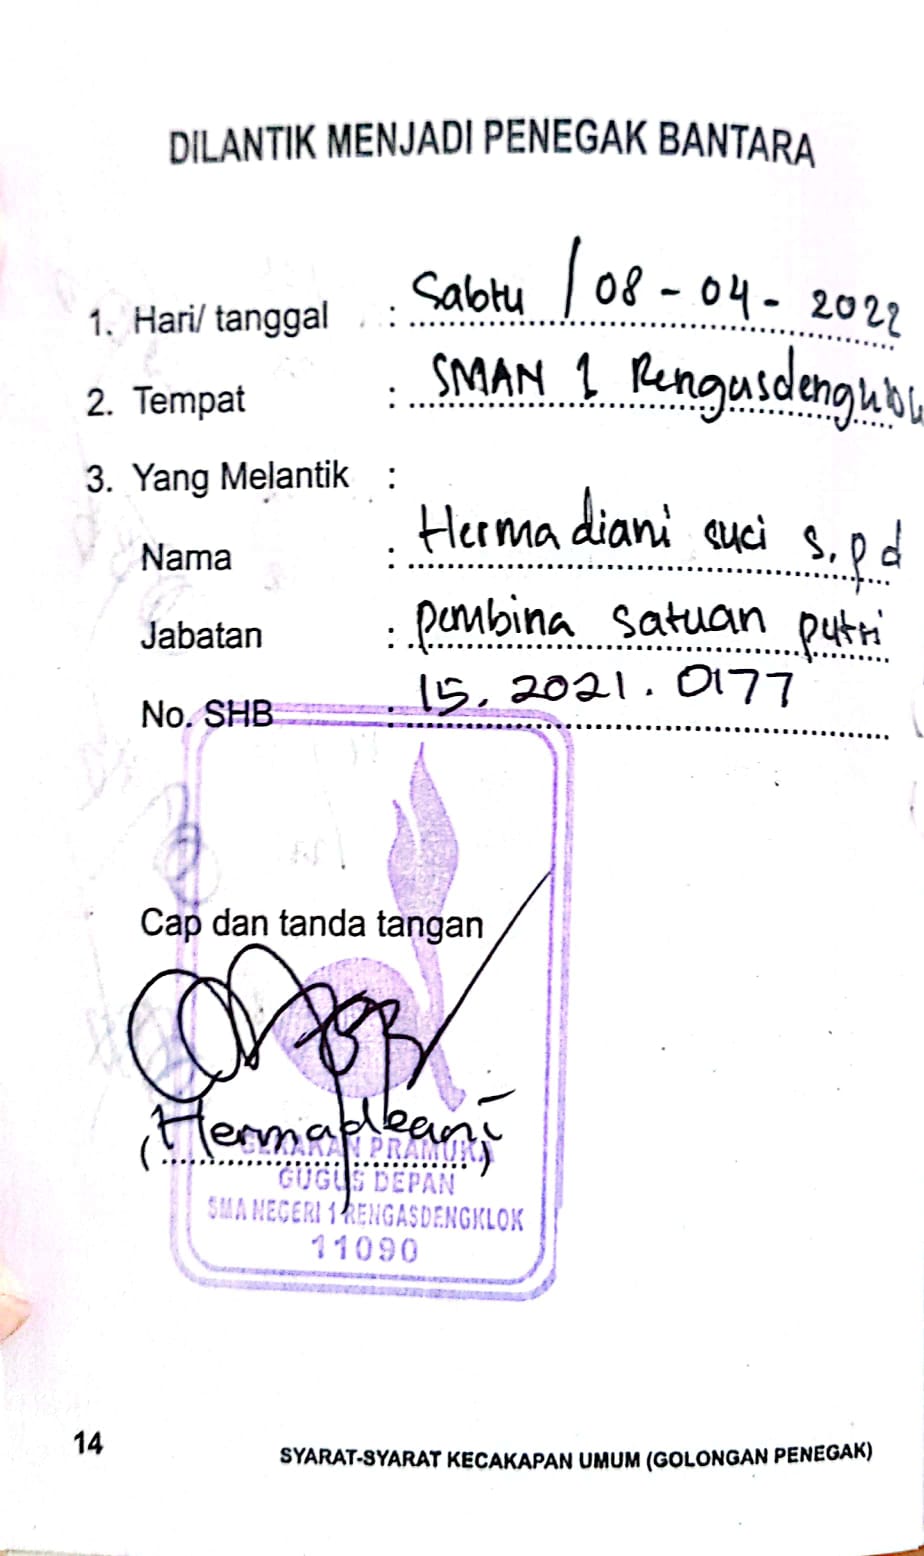 DILANTIK MENJADI PENEGAK BANTARA
1. Hari/ tanggal : Sabtu / 08 - 04 - 2022
2. Tempat : SMAN 1 Rengasdengklok
3. Yang Melantik :
Nama : Herma diani suci s.pd
Jabatan : pembina satuan putri
No. SHB : 15. 2021. 0177
Cap dan tanda tangan
(Hermadeani)
GERAKAN PRAMUKA
GUGUS DEPAN
SMA NEGERI 1 RENGASDENGKLOK
11090
14
SYARAT-SYARAT KECAKAPAN UMUM (GOLONGAN PENEGAK)